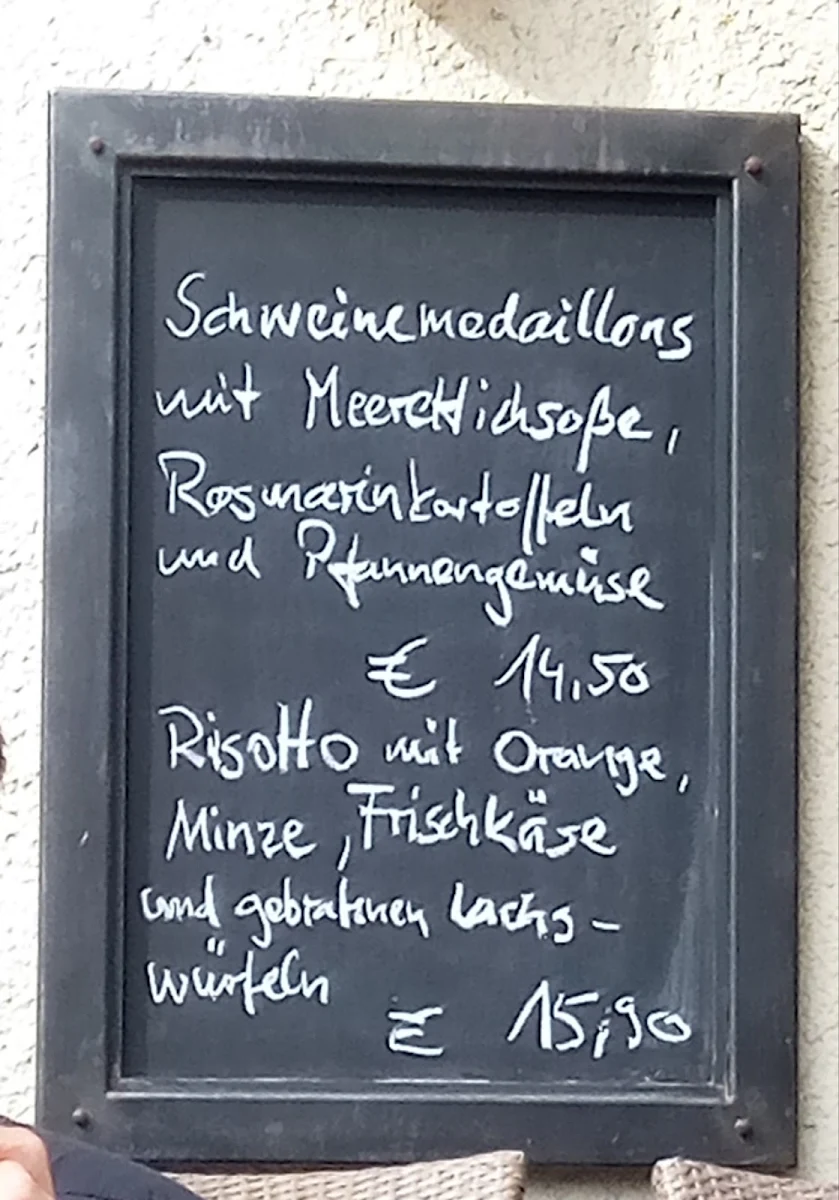 Schweinemedaillons
mit Meerettichsoße,
Rosmarinkartoffeln
und Pfannengemüse
€ 14,50
Risotto mit Orange,
Minze, Frischkäse
und gebratenen Lachs-
würfeln
€ 15,90